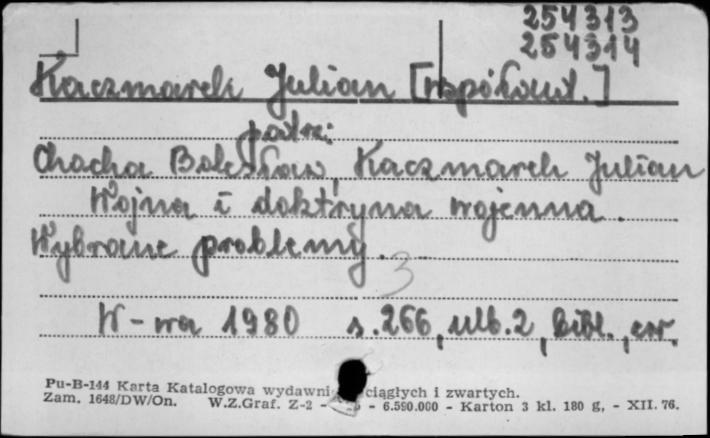 254313
254314
Kaczmarek Julian [współaut.]
patrz:
Chocha Bolesław, Kaczmarek Julian
Wojna i doktryna wojenna.
Wybrane problemy.
3
W-wa 1980 s.266, nlb.2, bibl., err.
Pu-B-144 Karta Katalogowa wydawni ciągłych i zwartych.
Zam. 1648/DW/On. W.Z.Graf. Z-2 - - 6.590.000 - Karton 3 kl. 180 g, - XII. 76.